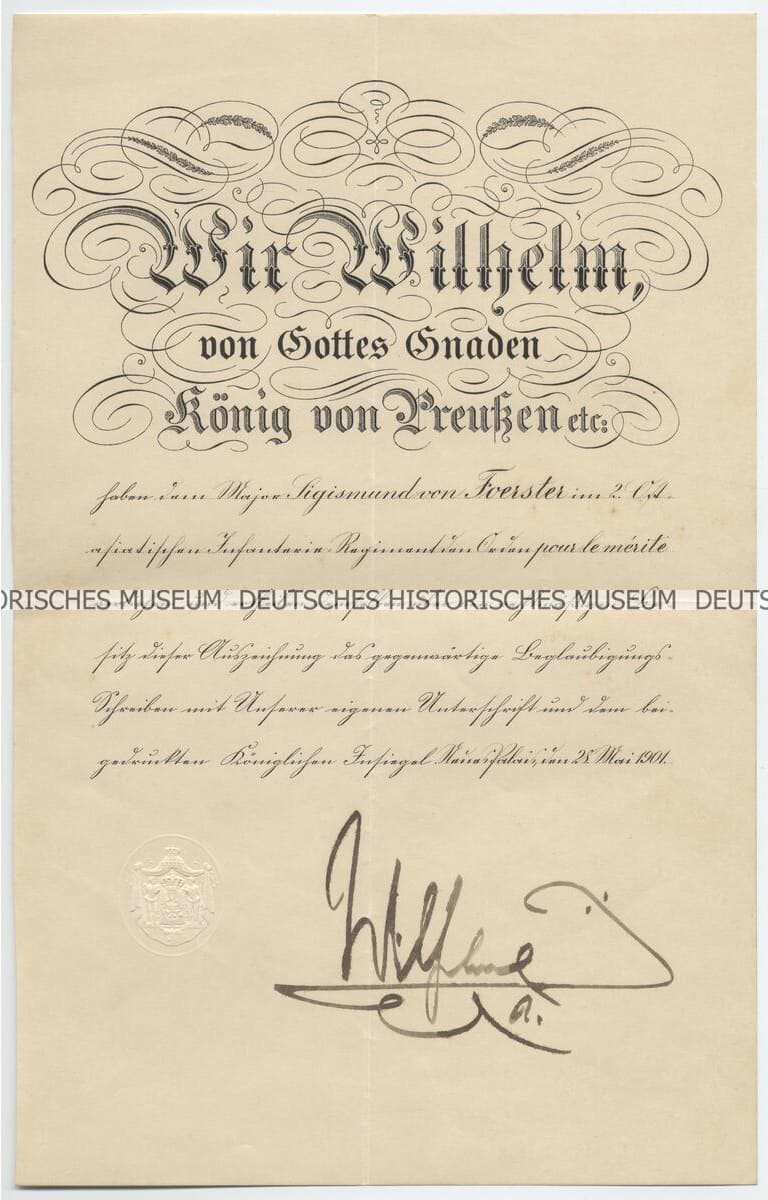 Wir Wilhelm,
von Gottes Gnaden
König von Preußen etc:
haben dem Major Sigismund von Foerster im 2. Ost-
asiatischen Infanterie-Regiment den Orden pour le mérite
ORISCHES MUSEUM DEUTSCHES HISTORISCHES MUSEUM DEUTS
sitz dieser Auszeichnung das gegenwärtige Beglaubigungs-
Schreiben mit Unserer eigenen Unterschrift und dem bei-
gedruckten Königlichen Insiegel. Neues Palais, den 28. Mai 1901.
Wilhelm